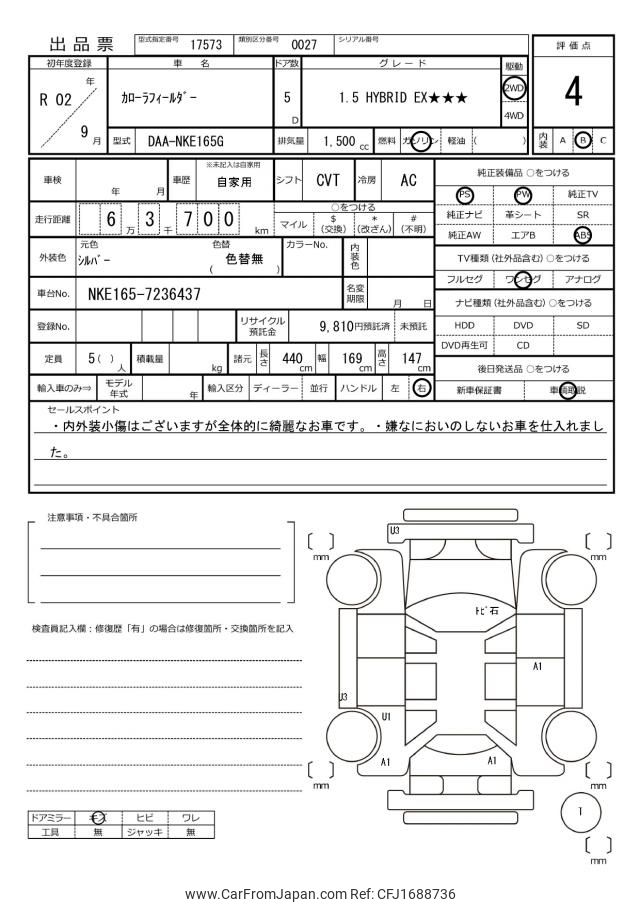 出品票
型式指定番号 17573 類別区分番号 0027 シリアル番号
評価点
4
内装 A B C
初年度登録 車名 ドア数 グレード 駆動
R 02 年 9 月
カローラフィールダー
5 D
1.5 HYBRID EX★★★
2WD
4WD
型式 DAA-NKE165G 排気量 1,500 cc 燃料 ガソリン 軽油 ( )
車検 年 月 車歴 ※未記入は自家用 自家用 シフト CVT 冷房 AC
走行距離 6 3 7 0 0 万 千 km
○をつける
マイル $ (交換) * (改ざん) # (不明)
外装色 元色 シルバー 色替 ( 色替無 ) カラーNo. 内装色
車台No. NKE165-7236437 名変期限 月 日
登録No. リサイクル預託金 9,810円預託済 未預託
定員 5 ( ) 人 積載量 kg 諸元 長さ 440 cm 幅 169 cm 高さ 147 cm
輸入車のみ⇒ モデル年式 年 輸入区分 ディーラー 並行 ハンドル 左 右
純正装備品 ○をつける
PS PW 純正TV
純正ナビ 革シート SR
純正AW エアB ABS
TV種類 (社外品含む) ○をつける
フルセグ ワンセグ アナログ
ナビ種類 (社外品含む) ○をつける
HDD DVD SD
DVD再生可 CD
後日発送品 ○をつける
新車保証書 車輌取説
セールスポイント
・内外装小傷はございますが全体的に綺麗なお車です。・嫌なにおいのしないお車を仕入れまし
た。
注意事項・不具合箇所
検査員記入欄：修復歴「有」の場合は修復箇所・交換箇所を記入
ドアミラー キズ ヒビ ワレ
工具 無 ジャッキ 無
U3
mm
mm
トビ石
A1
U3
U1
A1
A1
mm
mm
T
mm
www.CarFromJapan.com Ref: CFJ1688736